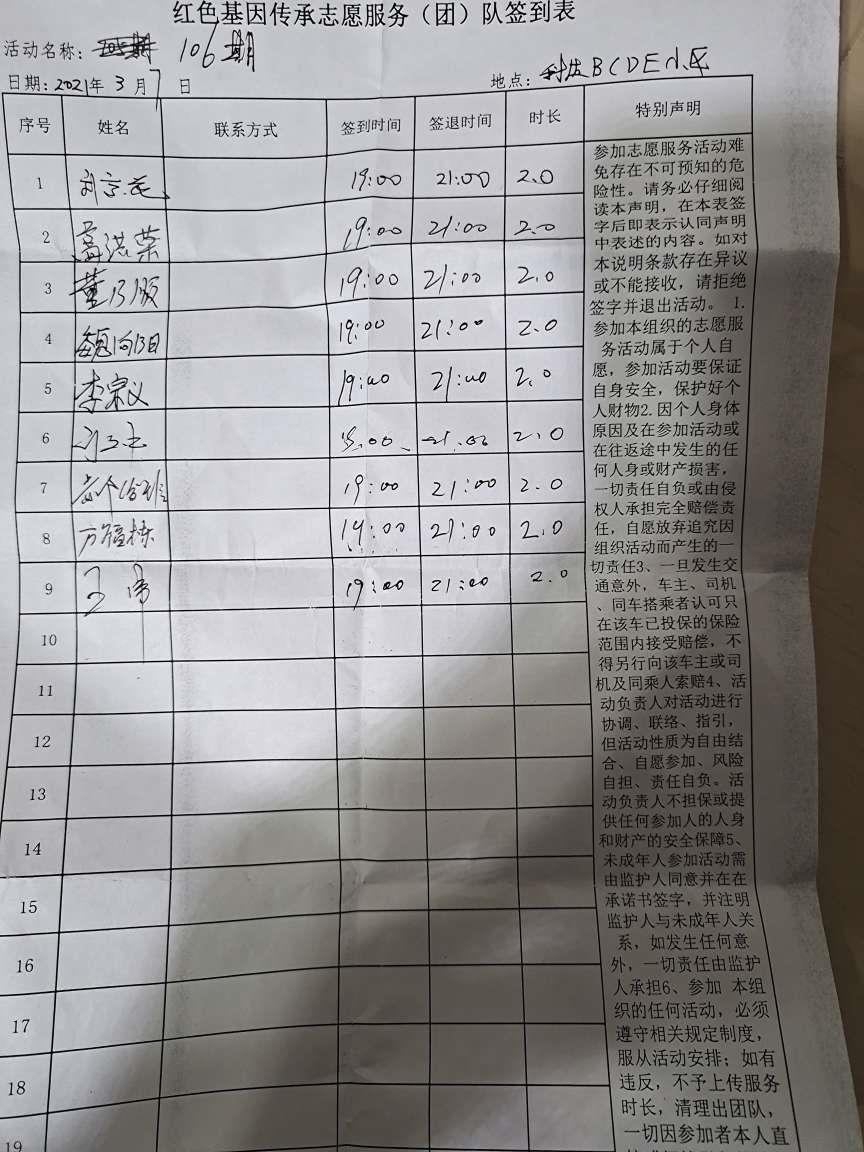 红色基因传承志愿服务（团）队签到表
活动名称： 106期
日期：2021年 3 月 7 日
地点： BCDE小区
序号 姓名 联系方式 签到时间 签退时间 时长 特别声明
1 19:00 21:00 2.0
2 19:00 21:00 2.0
3 董乃顺 19:00 21:00 2.0
4 魏向阳 19:00 21:00 2.0
5 李宗义 19:00 21:00 2.0
6 2.0
7 19:00 21:00 2.0
8 万福栋 19:00 21:00 2.0
9 19:00 21:00 2.0
10
11
12
13
14
15
16
17
18
19
参加志愿服务活动难
免存在不可预知的危
险性。请务必仔细阅
读本声明，在本表签
字后即表示认同声明
中表述的内容。如对
本说明条款存在异议
或不能接收，请拒绝
签字并退出活动。 1.
参加本组织的志愿服
务活动属于个人自
愿，参加活动要保证
自身安全，保护好个
人财物2.因个人身体
原因及在参加活动或
在往返途中发生的任
何人身或财产损害，
一切责任自负或由侵
权人承担完全赔偿责
任，自愿放弃追究因
组织活动而产生的一
切责任3、一旦发生交
通意外，车主、司机
、同车搭乘者认可只
在该车已投保的保险
范围内接受赔偿，不
得另行向该车主或司
机及同乘人索赔4、活
动负责人对活动进行
协调、联络、指引，
但活动性质为自由结
合、自愿参加、风险
自担、责任自负。活
动负责人不担保或提
供任何参加人的人身
和财产的安全保障5、
未成年人参加活动需
由监护人同意并在在
承诺书签字，并注明
监护人与未成年人关
系，如发生任何意
外，一切责任由监护
人承担6、参加 本组
织的任何活动，必须
遵守相关规定制度，
服从活动安排；如有
违反，不予上传服务
时长，清理出团队，
一切因参加者本人直